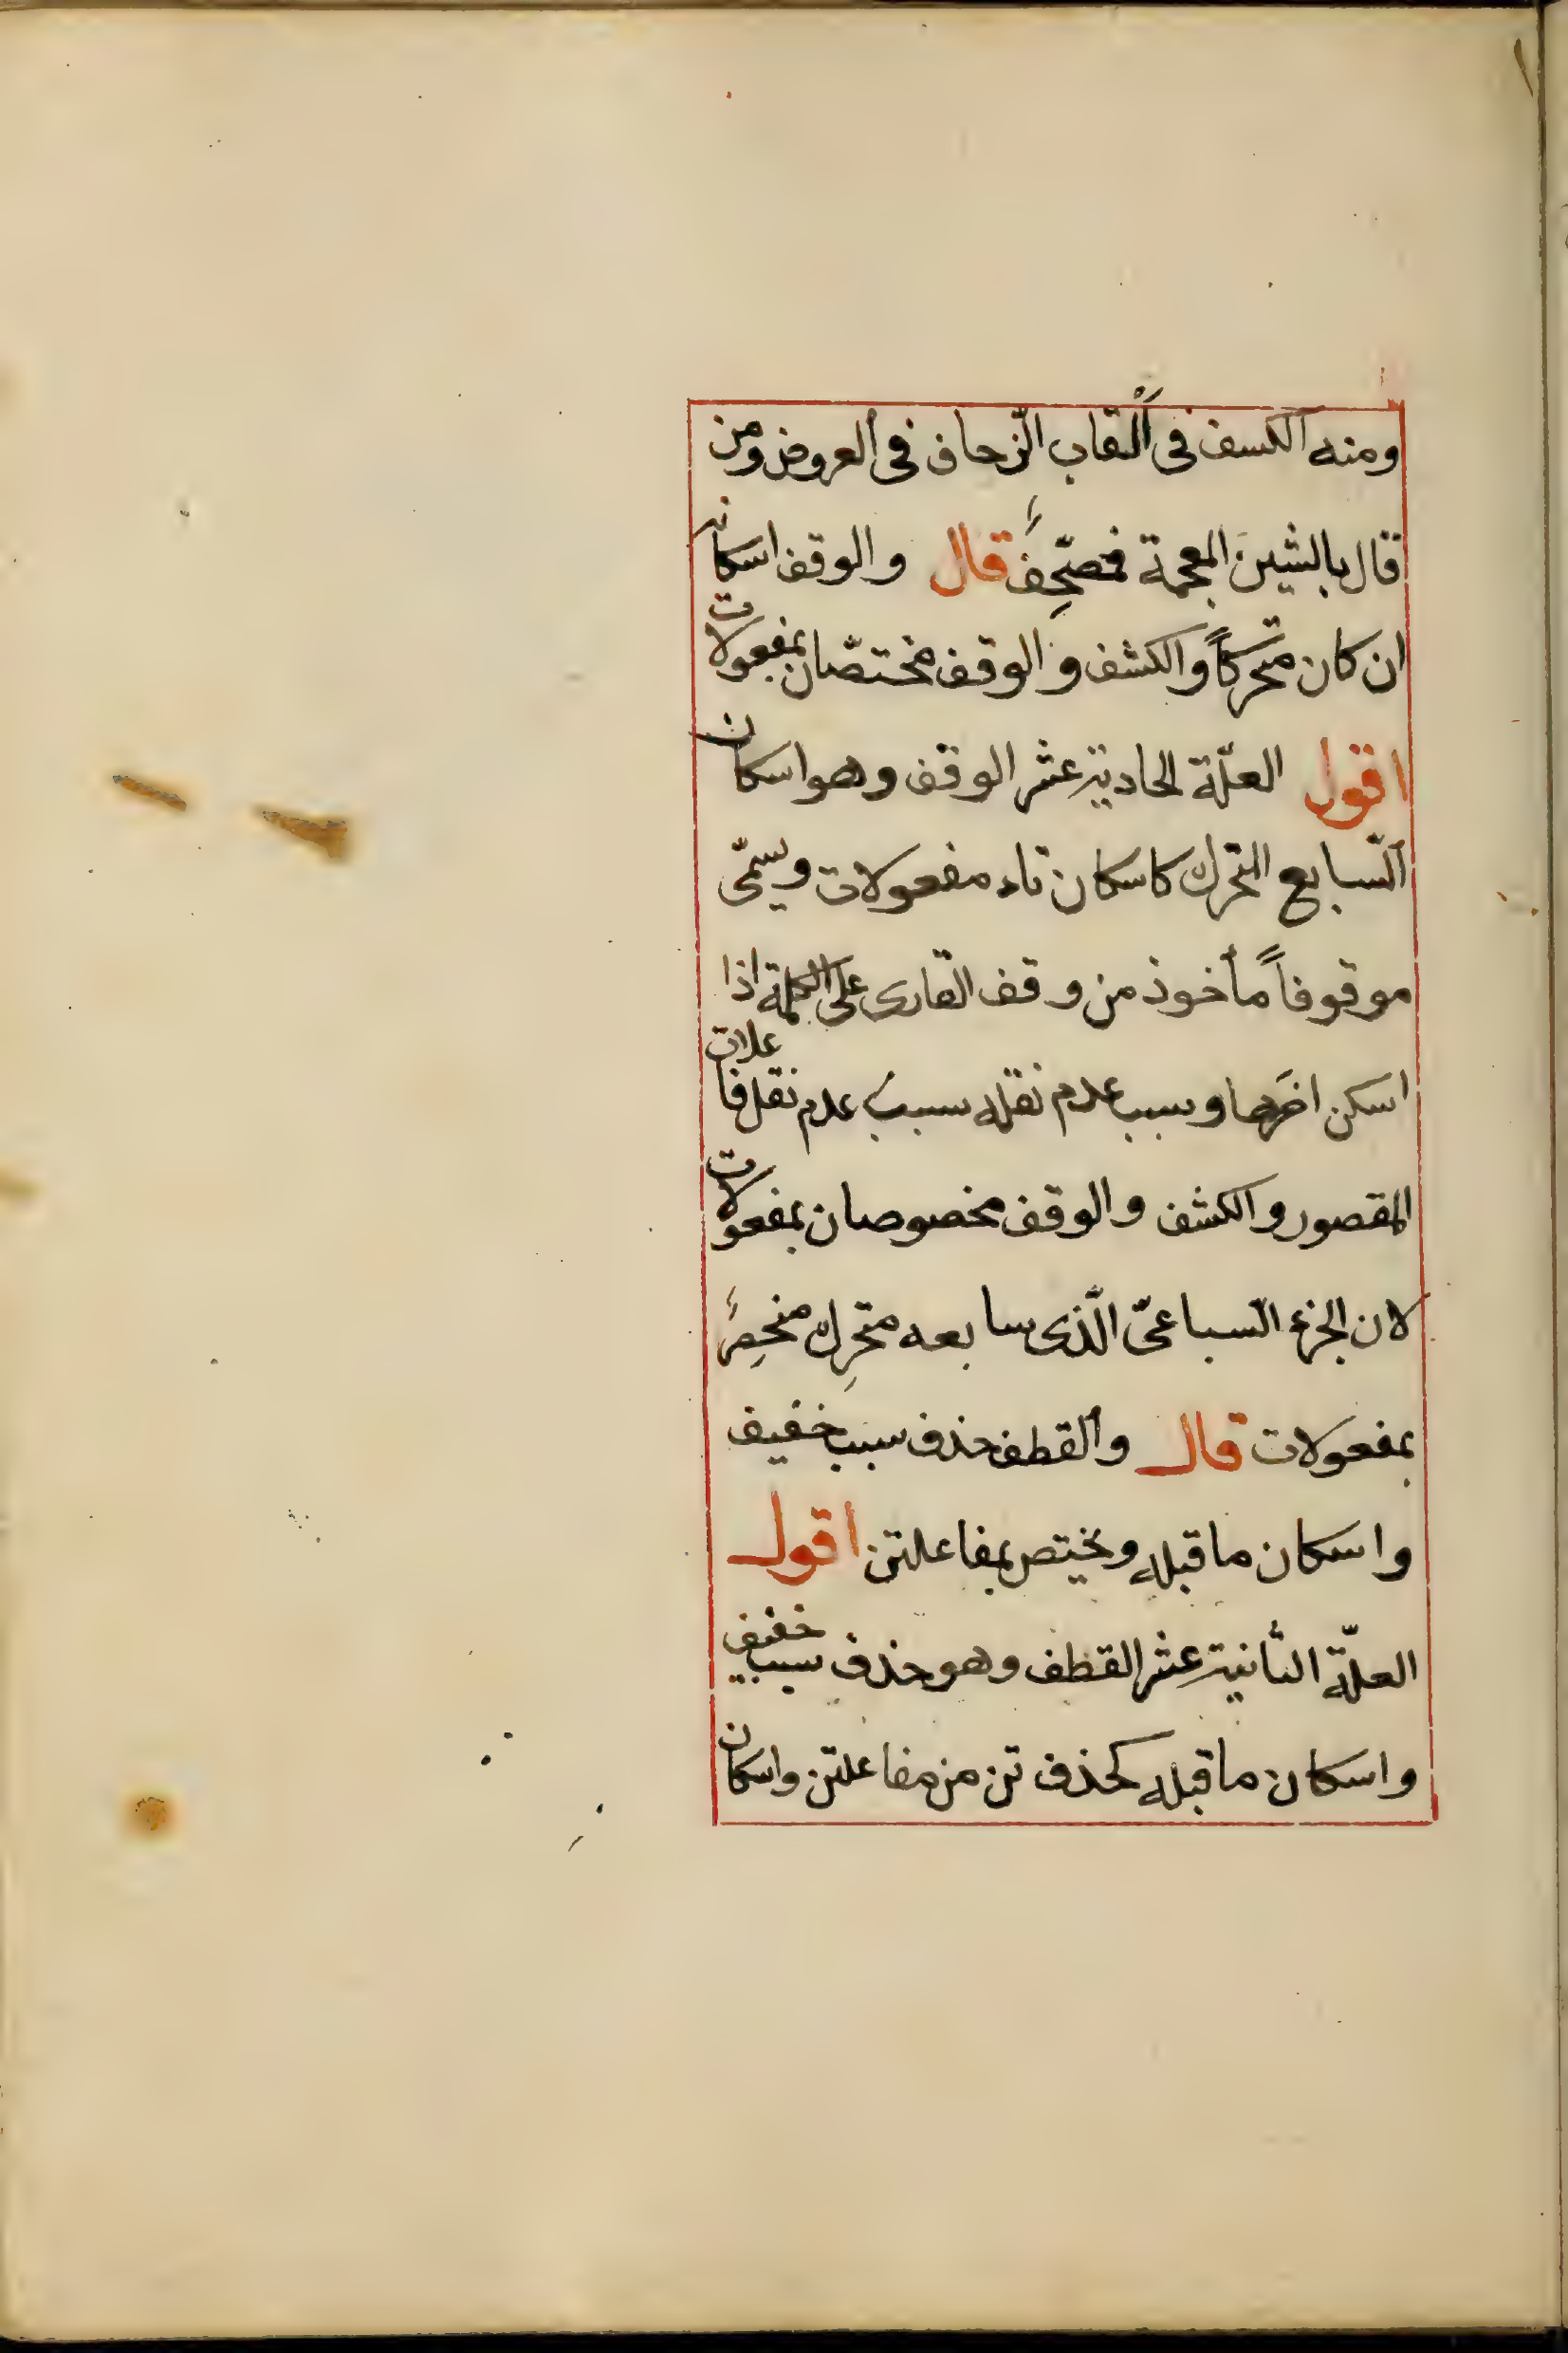 ومنه الكسف فى ألقاب الزّحاف فى العروض ومن
قال بالشين المعجمة فمصّحِف قال والوقف اسكانه
ان كان متحركاً والكشف والوقف مختصّان بمفعولات
اقول العلّة الحادية عشر الوقف وهو اسكان
السّابع المتحرك كاسكان تاء مفعولات ويسمّى
موقوفاً مأخوذ من وقف القارى على الكلمة اذا
اسكن اخرها وسبب عدم نقله سبب عدم نقل فاعلات
المقصور والكشف والوقف مخصوصان بمفعولات
لان الجزء السّباعىّ الّذى سابعه متحرِك منحصِر
بمفعولات قال والقطف حذف سبب خفيف
واسكان ما قبله ويختص بمفاعلتن اقول
العلّة الثانية عشر القطف وهو حذف سبب خفيف
واسكان ما قبله كحذف تن من مفاعلتن واسكان